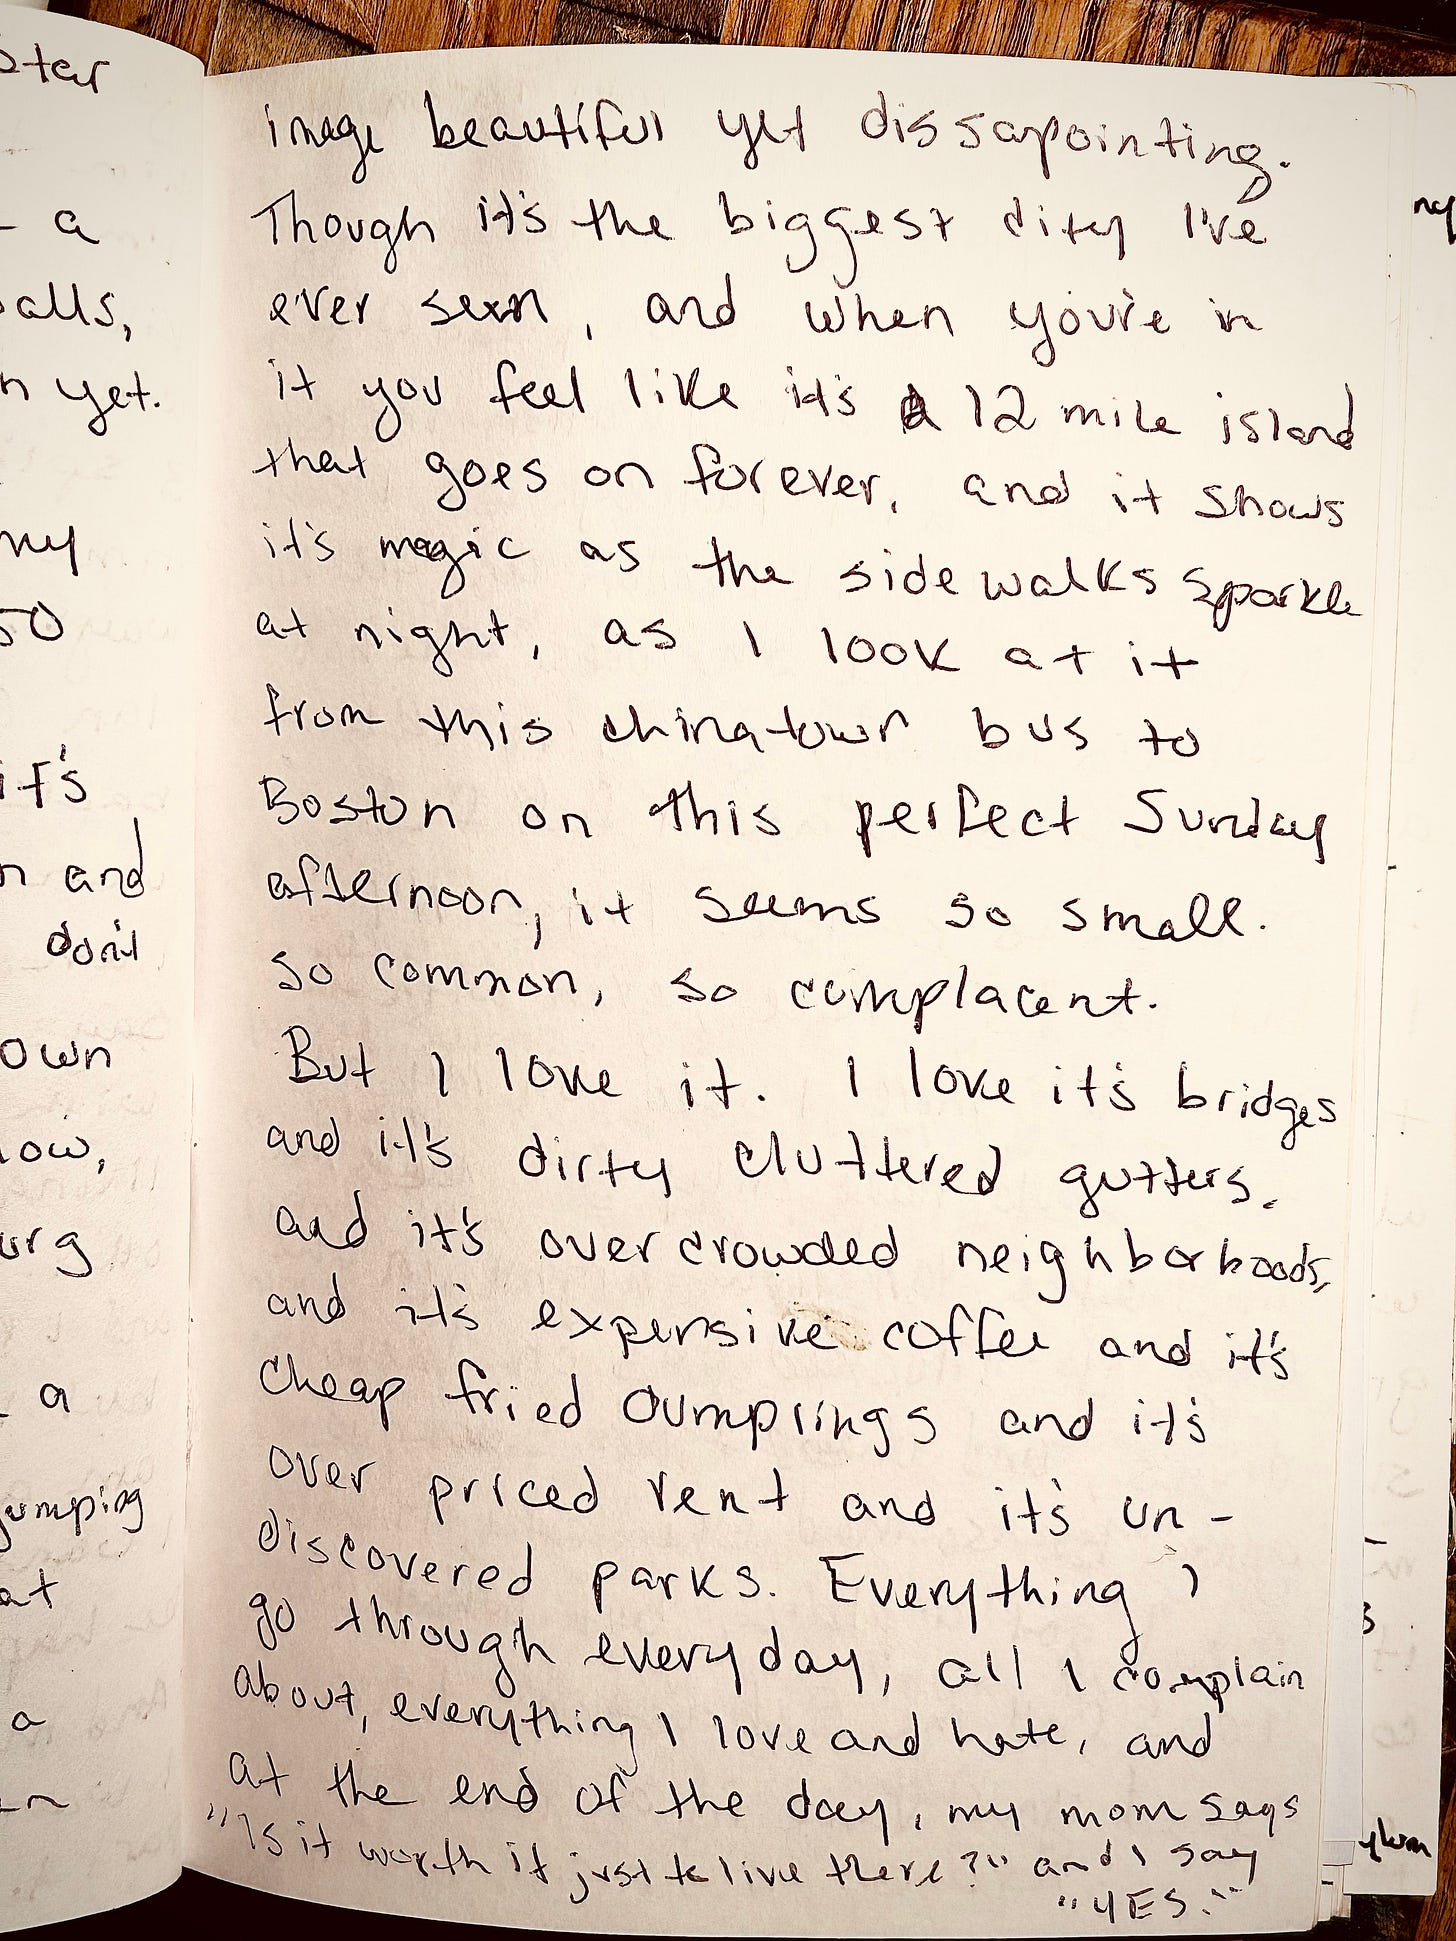 ster
a
alls,
n yet.
my
50
it's
n and
don't
own
low,
urg
a
jumping
at
a
image beautiful yet dissapointing.
Though it's the biggest city I've
ever seen, and when you're in
it you feel like it's a 12 mile island
that goes on forever, and it shows
it's magic as the sidewalks sparkle
at night, as I look at it
from this chinatown bus to
Boston on this perfect Sunday
afternoon, it seems so small.
So common, so complacent.
But I love it. I love it's bridges
and it's dirty cluttered gutters,
and it's overcrowded neighborhoods,
and it's expensive coffee and it's
cheap fried dumplings and it's
over priced rent and it's un-
discovered parks. Everything I
go through everyday, all I complain
about, everything I love and hate, and
at the end of the day, my mom says
"Is it worth it just to live there?" and I say
"YES."